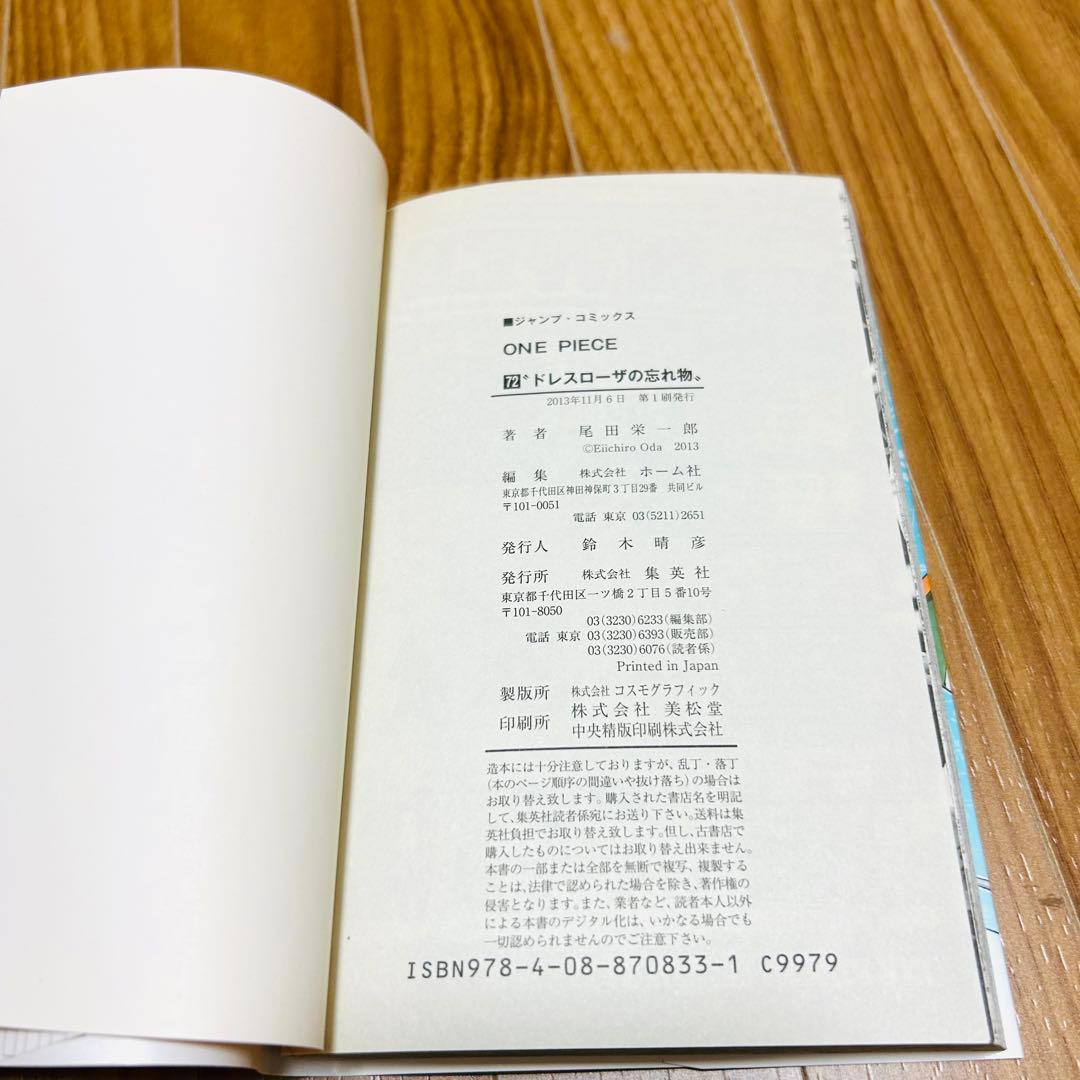 ■ジャンプ・コミックス
ONE PIECE
72〝ドレスローザの忘れ物〟
2013年11月6日 第1刷発行
著者 尾田栄一郎
©Eiichiro Oda 2013
編集 株式会社 ホーム社
東京都千代田区神田神保町3丁目29番 共同ビル
〒101-0051
電話 東京 03(5211)2651
発行人 鈴木晴彦
発行所 株式会社 集英社
東京都千代田区一ツ橋2丁目5番10号
〒101-8050
03(3230)6233(編集部)
電話 東京 03(3230)6393(販売部)
03(3230)6076(読者係)
Printed in Japan
製版所 株式会社 コスモグラフィック
印刷所 株式会社 美松堂
中央精版印刷株式会社
造本には十分注意しておりますが、乱丁・落丁
(本のページ順序の間違いや抜け落ち)の場合は
お取り替え致します。購入された書店名を明記
して、集英社読者係宛にお送り下さい。送料は集
英社負担でお取り替え致します。但し、古書店で
購入したものについてはお取り替え出来ません。
本書の一部または全部を無断で複写、複製する
ことは、法律で認められた場合を除き、著作権の
侵害となります。また、業者など、読者本人以外
による本書のデジタル化は、いかなる場合でも
一切認められませんのでご注意下さい。
ISBN978-4-08-870833-1 C9979